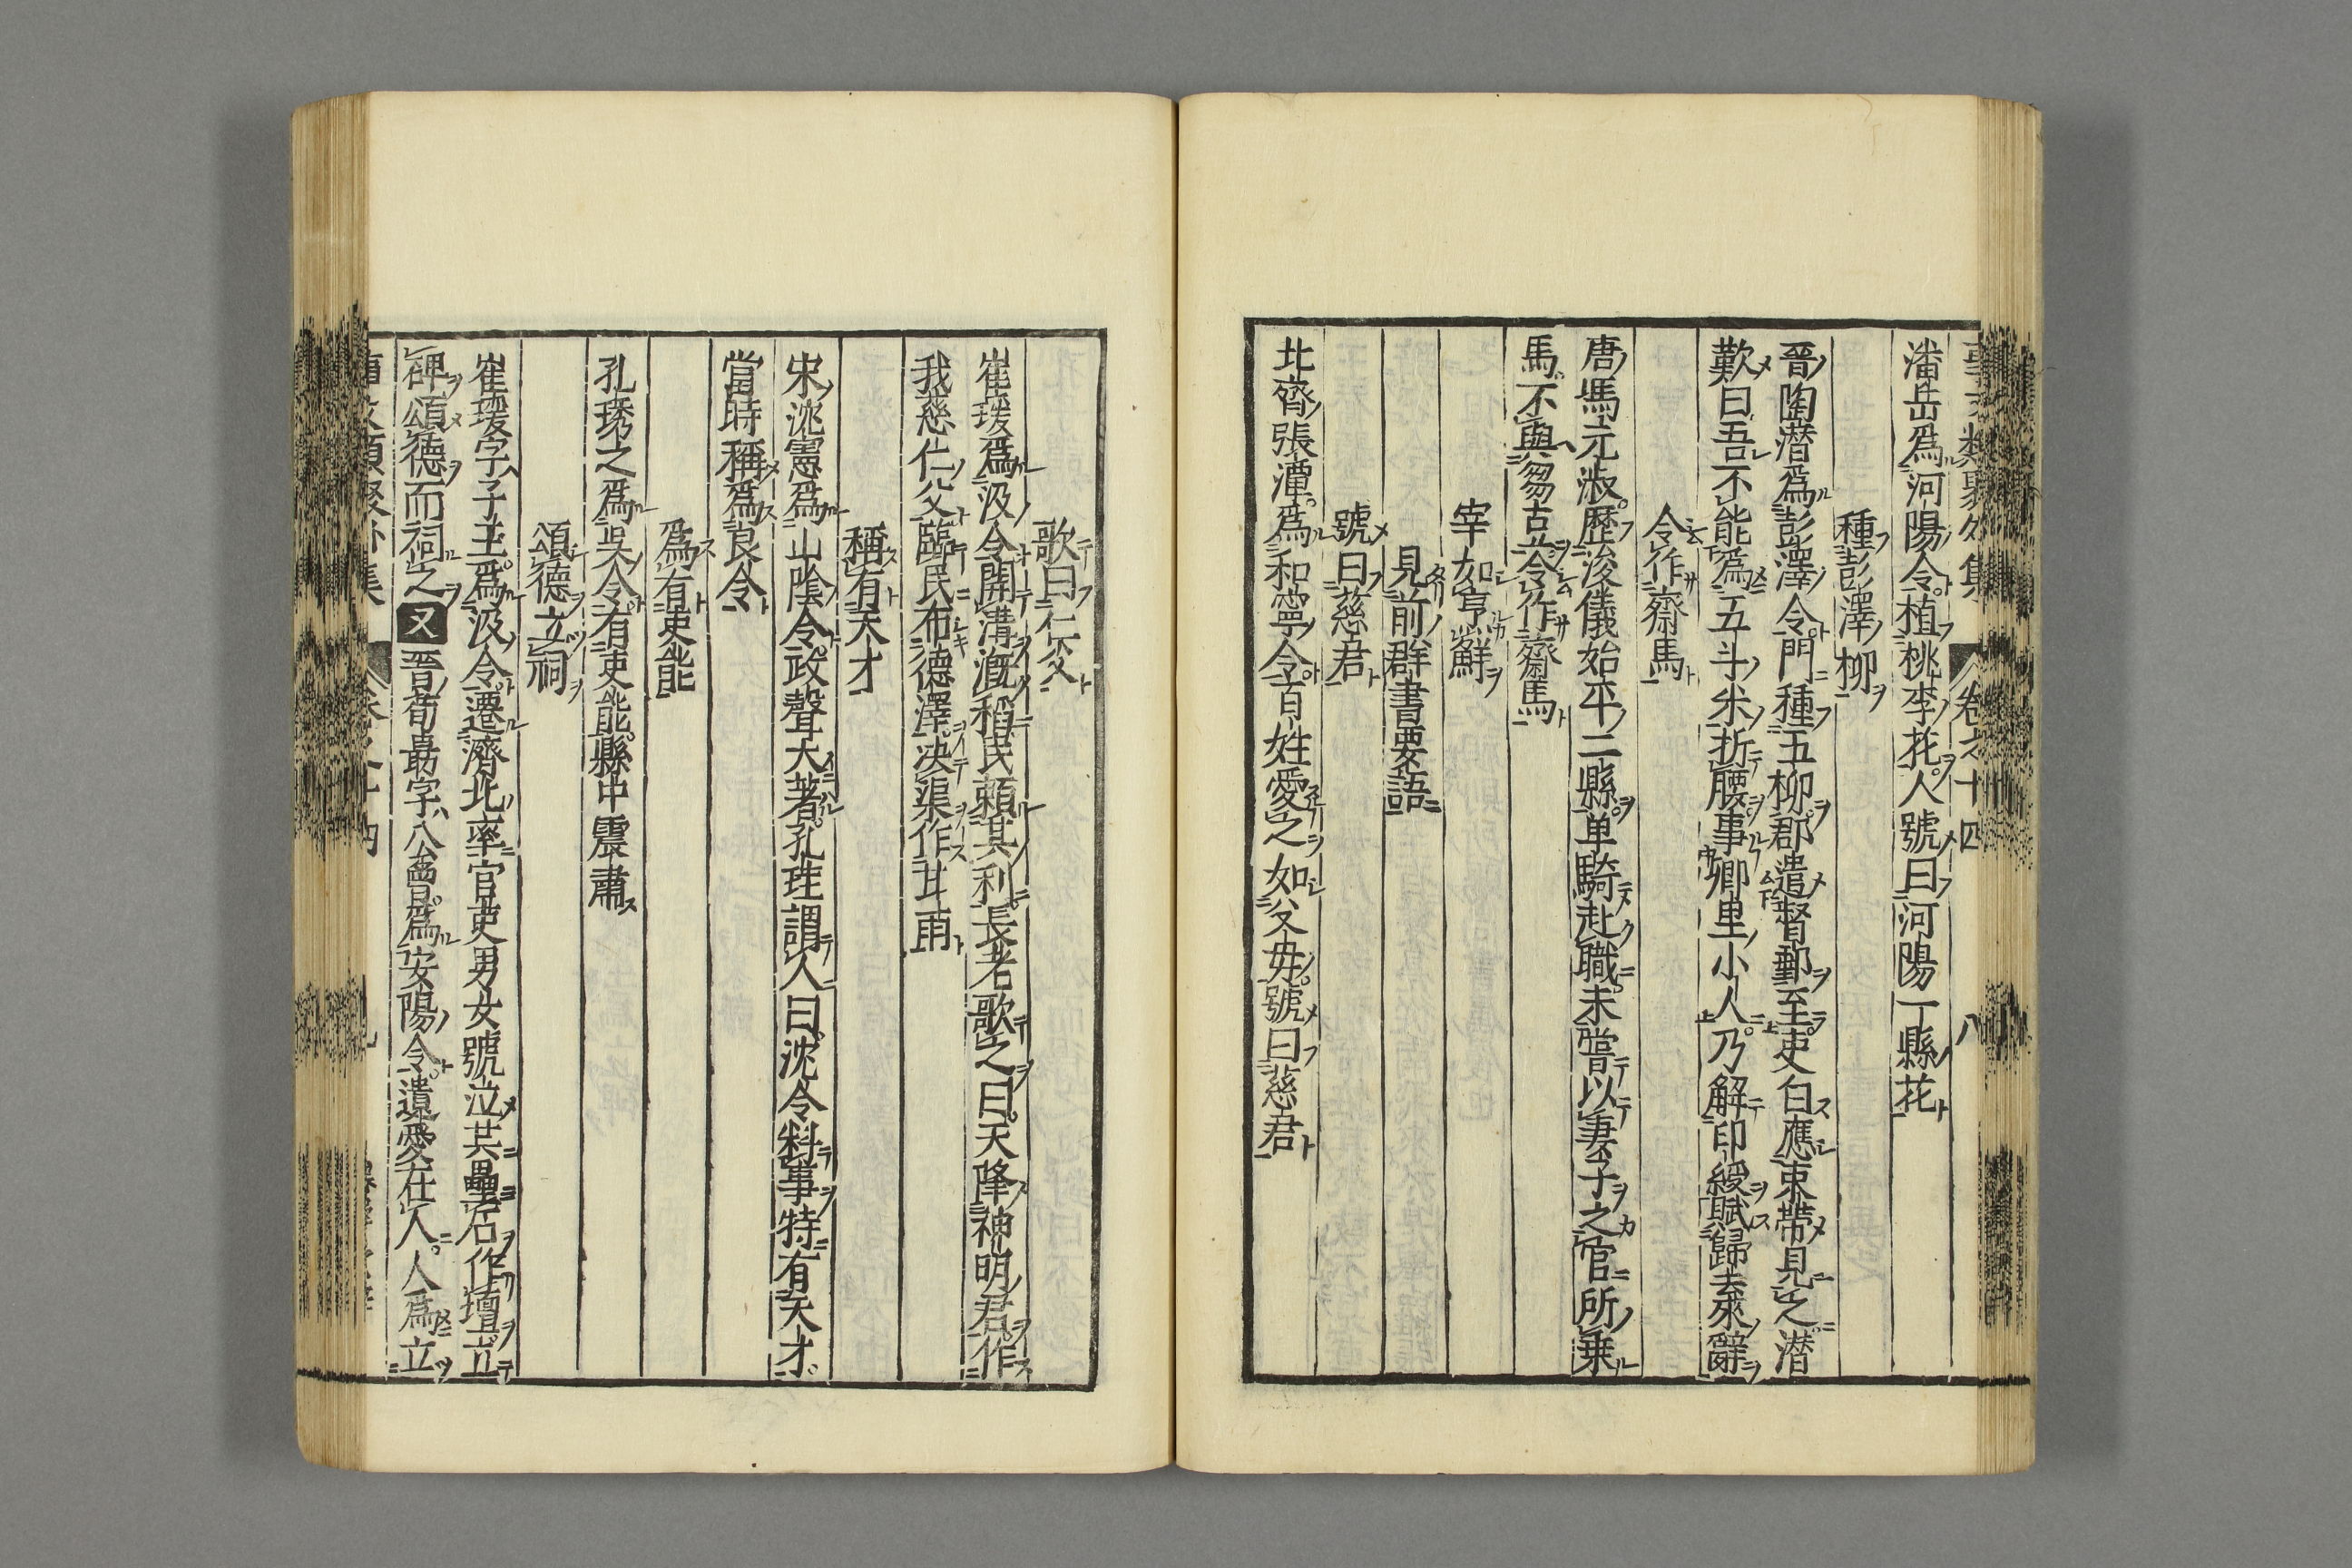 事文類聚外集 卷之十四 八
潘岳爲河陽令植桃李花人號曰河陽一縣花
種彭澤柳
晉陶潜爲彭澤令門種五柳郡遣督郵至吏白應束帶見之潜
歎曰吾不能爲五斗米折腰事鄉里小人乃解印綬賦歸去來辭
令作齋馬
唐馮元淑歷浚儀始平二縣单騎赴職未嘗以妻子之官所乗
馬不與芻吉令作齋馬
宰如烹鮮
見前群書要語
號曰慈君
北齊張潭爲和寧令百姓愛之如父母號曰慈君
歌曰仁父
崔瑗爲汲令開溝漑稻民頼其利長老歌之曰天降神明君作
我慈仁父臨民布德澤决渠作甘雨
稱有天才
宋沈憲爲山陰令政聲大著孔珪謂人曰沈令料事特有天才
當時稱爲良令
爲有吏能
孔琇之爲吳令有吏能縣中震肅
頌德立祠
崔瑗字子玉爲汲令遷濟北率官吏男女號泣共壘石作壇立
碑頌德而祠之又晉荀勗字公曾爲安陽令遺愛在人人爲立